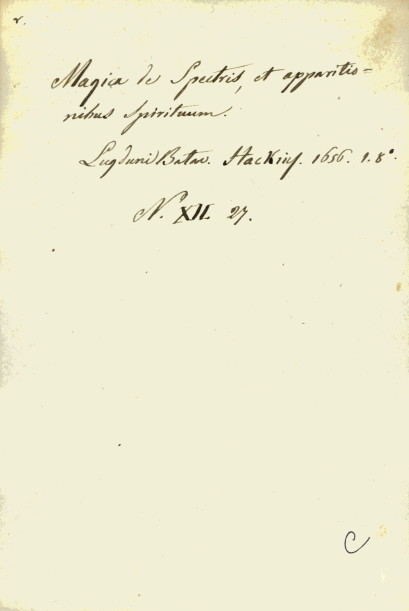 v.
Magica de Spectris, et apparitio=
nibus Spirituum.
Lugduni Batav. Hackius. 1656. 1. 8°.
N. XII. 27.
C